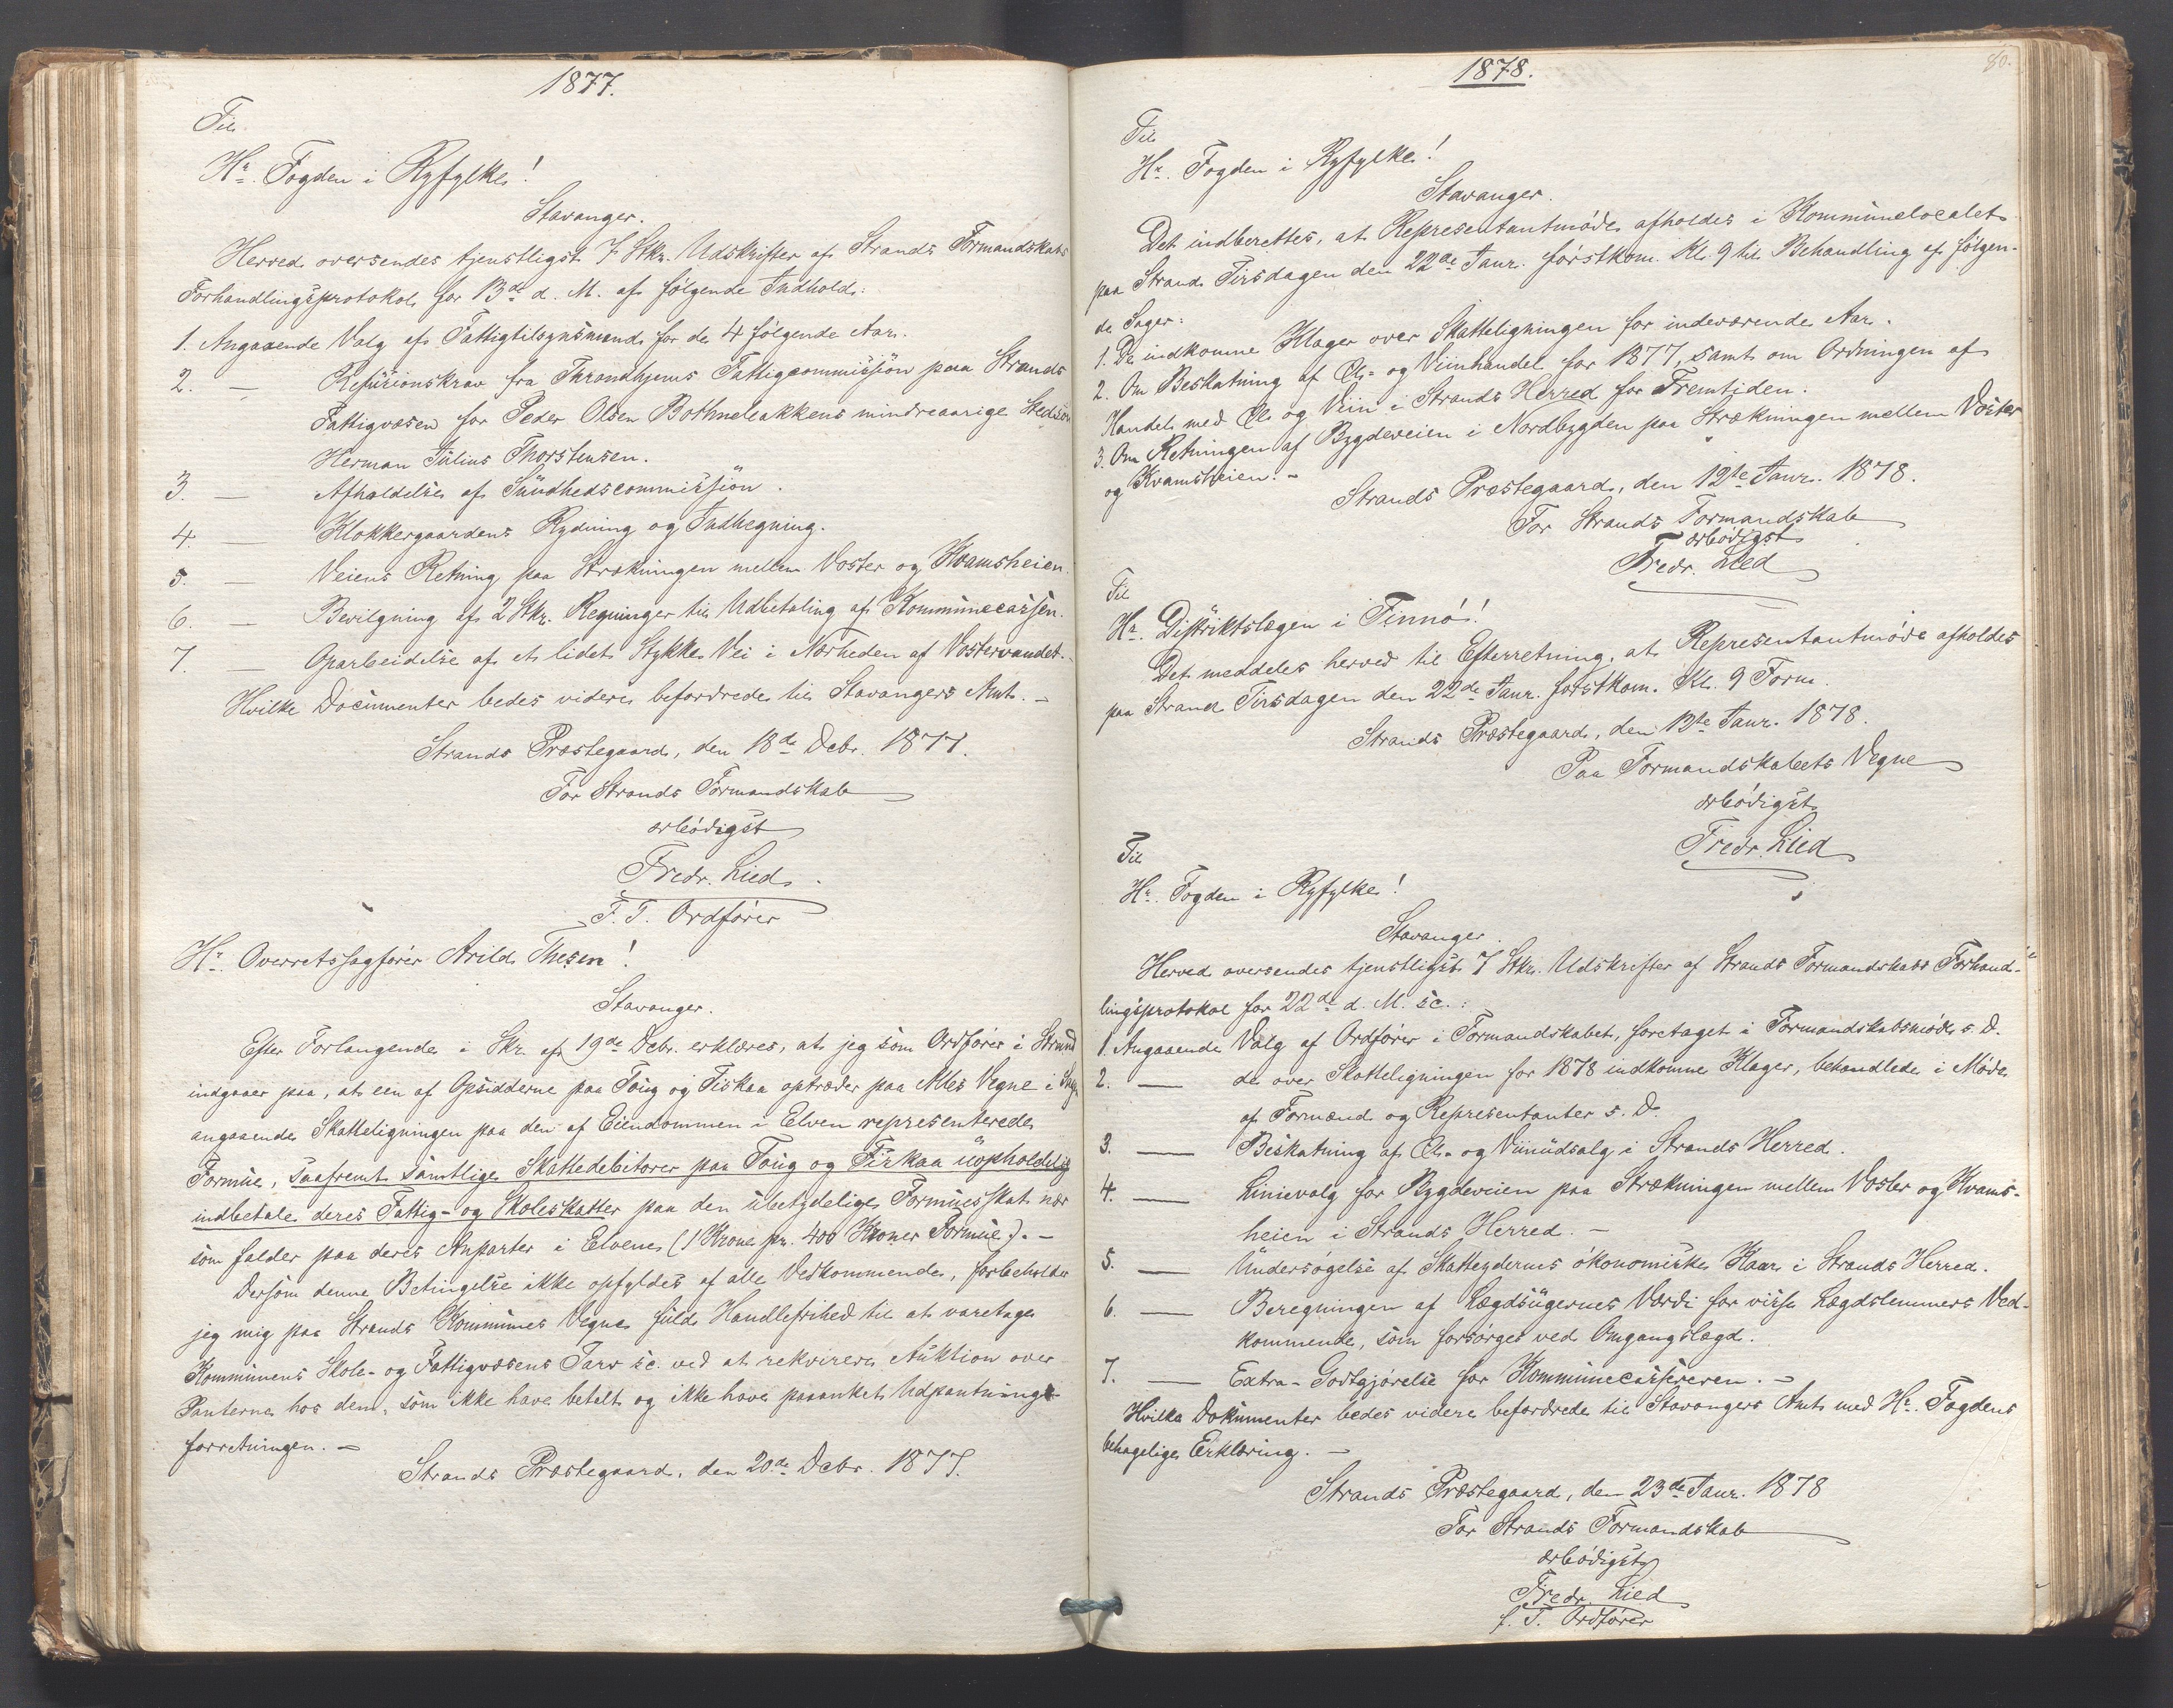 1877.
Til
Hr. Fogden i Ryfylke!
Stavanger.
Herved oversendes tjenstligst 7 Stkr. Udskrifter af Strands Formandskabs
Forhandlingsprotokol for 13de d. M. af følgende Indhold:
1. Angaaende Valg af Fattigtilsynsmænd for de 4 følgende Aar.
2. — Refusionskrav fra Throndhjems Fattigcommission paa Strands
Fattigvæsen for Peder Olsen Bothneleakkens mindreaarige Stedsøn
Herman Julius Thorstensen.
3. — Afholdelse af Sundhedscommission.
4. — Klokkergaardens Rydning og Indhegning.
5. — Veiens Retning paa Strækningen mellem Voster og Kvamsheien.
6. — Bevilgning af 2 Stkr. Regninger til Udbetaling af Kommunecassen.
7. — Oparbeidelse af et lidet Stykke Vei i Nærheden af Vostervandet.
Hvilke Documenter bedes videre befordrede til Stavangers Amt. —
Strands Præstegaard, den 18de Decbr. 1877.
For Strands Formandskab
ærbødigst
Fredr. Lied.
F. T. Ordfører
Hr. Overretssagfører Arild Thesen!
Stavanger.
Efter Forlangende i Skr. af 19de Decbr. erklæres, at jeg som Ordfører i Strand
indgaaer paa, at een af Opsidderne paa Toug og Fiskaa optræder paa Alles Vegne i Sag
angaaende Skatteligningen paa den af Eiendommen i Elven representerede
Formue, saafremt samtlige Skattedebitorer paa Toug og Fiskaa uopholdelig
indbetale deres Fattig- og Skoleskatter paa den ubetydelige Formuesskat nær
som falder paa deres Anparter i Elvene (1 Krone pr. 400 Kroner Formue). —
Dersom denne Betingelse ikke opfyldes af alle Vedkommende, forbeholder
jeg mig paa Strands Kommunes Vegne fuld Handlefrihed til at varetage
Kommunens Skole- og Fattigvæsens Tarv &c. ved at rekvirere Auktion over
Panterne hos dem, som ikke have betalt og ikke have paaanket Udpantnings-
forretningen. —
Strands Præstegaard, den 20de Decbr. 1877.
1878.
80.
Til
Hr. Fogden i Ryfylke!
Stavanger.
Det indberettes, at Representantmøde afholdes i Kommunelocalet
paa Strand Tirsdagen den 22de Janr. førstkom. Kl. 9 til Behandling af følgen-
de Sager:
1. De indkomne Klager over Skatteligningen for indeværende Aar.
2. Om Beskatning af Øl- og Viinhandel for 1877, samt om Ordningen af
Handel med Øl og Viin i Strands Herred for Fremtiden.
3. Om Retningen af Bygdeveien i Nordbygden paa Strækningen mellem Voster
og Kvamsheien. —
Strands Præstegaard, den 12te Janr. 1878.
For Strands Formandskab
ærbødigst
Fredr. Lied
Til
Hr. Distriktslægen i Finnø!
Det meddeles herved til Efterretning, at Representantmøde afholdes
paa Strand Tirsdagen den 22de Janr. førstkom. Kl. 9 Form.
Strands Præstegaard, den 12te Janr. 1878.
Paa Formandskabets Vegne
ærbødigst
Fredr. Lied
Til
Hr. Fogden i Ryfylke!
Stavanger.
Herved oversendes tjenstligst 7 Stkr. Udskrifter af Strands Formandskabs Forhand-
lingsprotokol for 22de d. M. &c.:
1. Angaaende Valg af Ordfører i Formandskabet, foretaget i Formandskabsmøde s. D.
2. — de over Skatteligningen for 1878 indkomne Klager, behandlede i Møde
af Formænd og Representanter s. D.
3. — Beskatning af Øl- og Viinudsalg i Strands Herred.
4. — Linievalg for Bygdeveien paa Strækningen mellem Voster og Kvams-
heien i Strands Herred. —
5. — Undersøgelse af Skatteydernes økonomiske Kaar i Strands Herred.
6. — Beregningen af Lægdsugernes Værdi for visse Lægdslemmers Ved-
kommende, som forsørges ved Omgangslægd.
7. — Extra-Godtgjørelse for Kommunecassereren. —
Hvilke Dokumenter bedes videre befordrede til Stavangers Amt med Hr. Fogdens
behagelige Erklæring. —
Strands Præstegaard, den 23de Janr. 1878
For Strands Formandskab
ærbødigst
Fredr. Lied
f. T. Ordfører